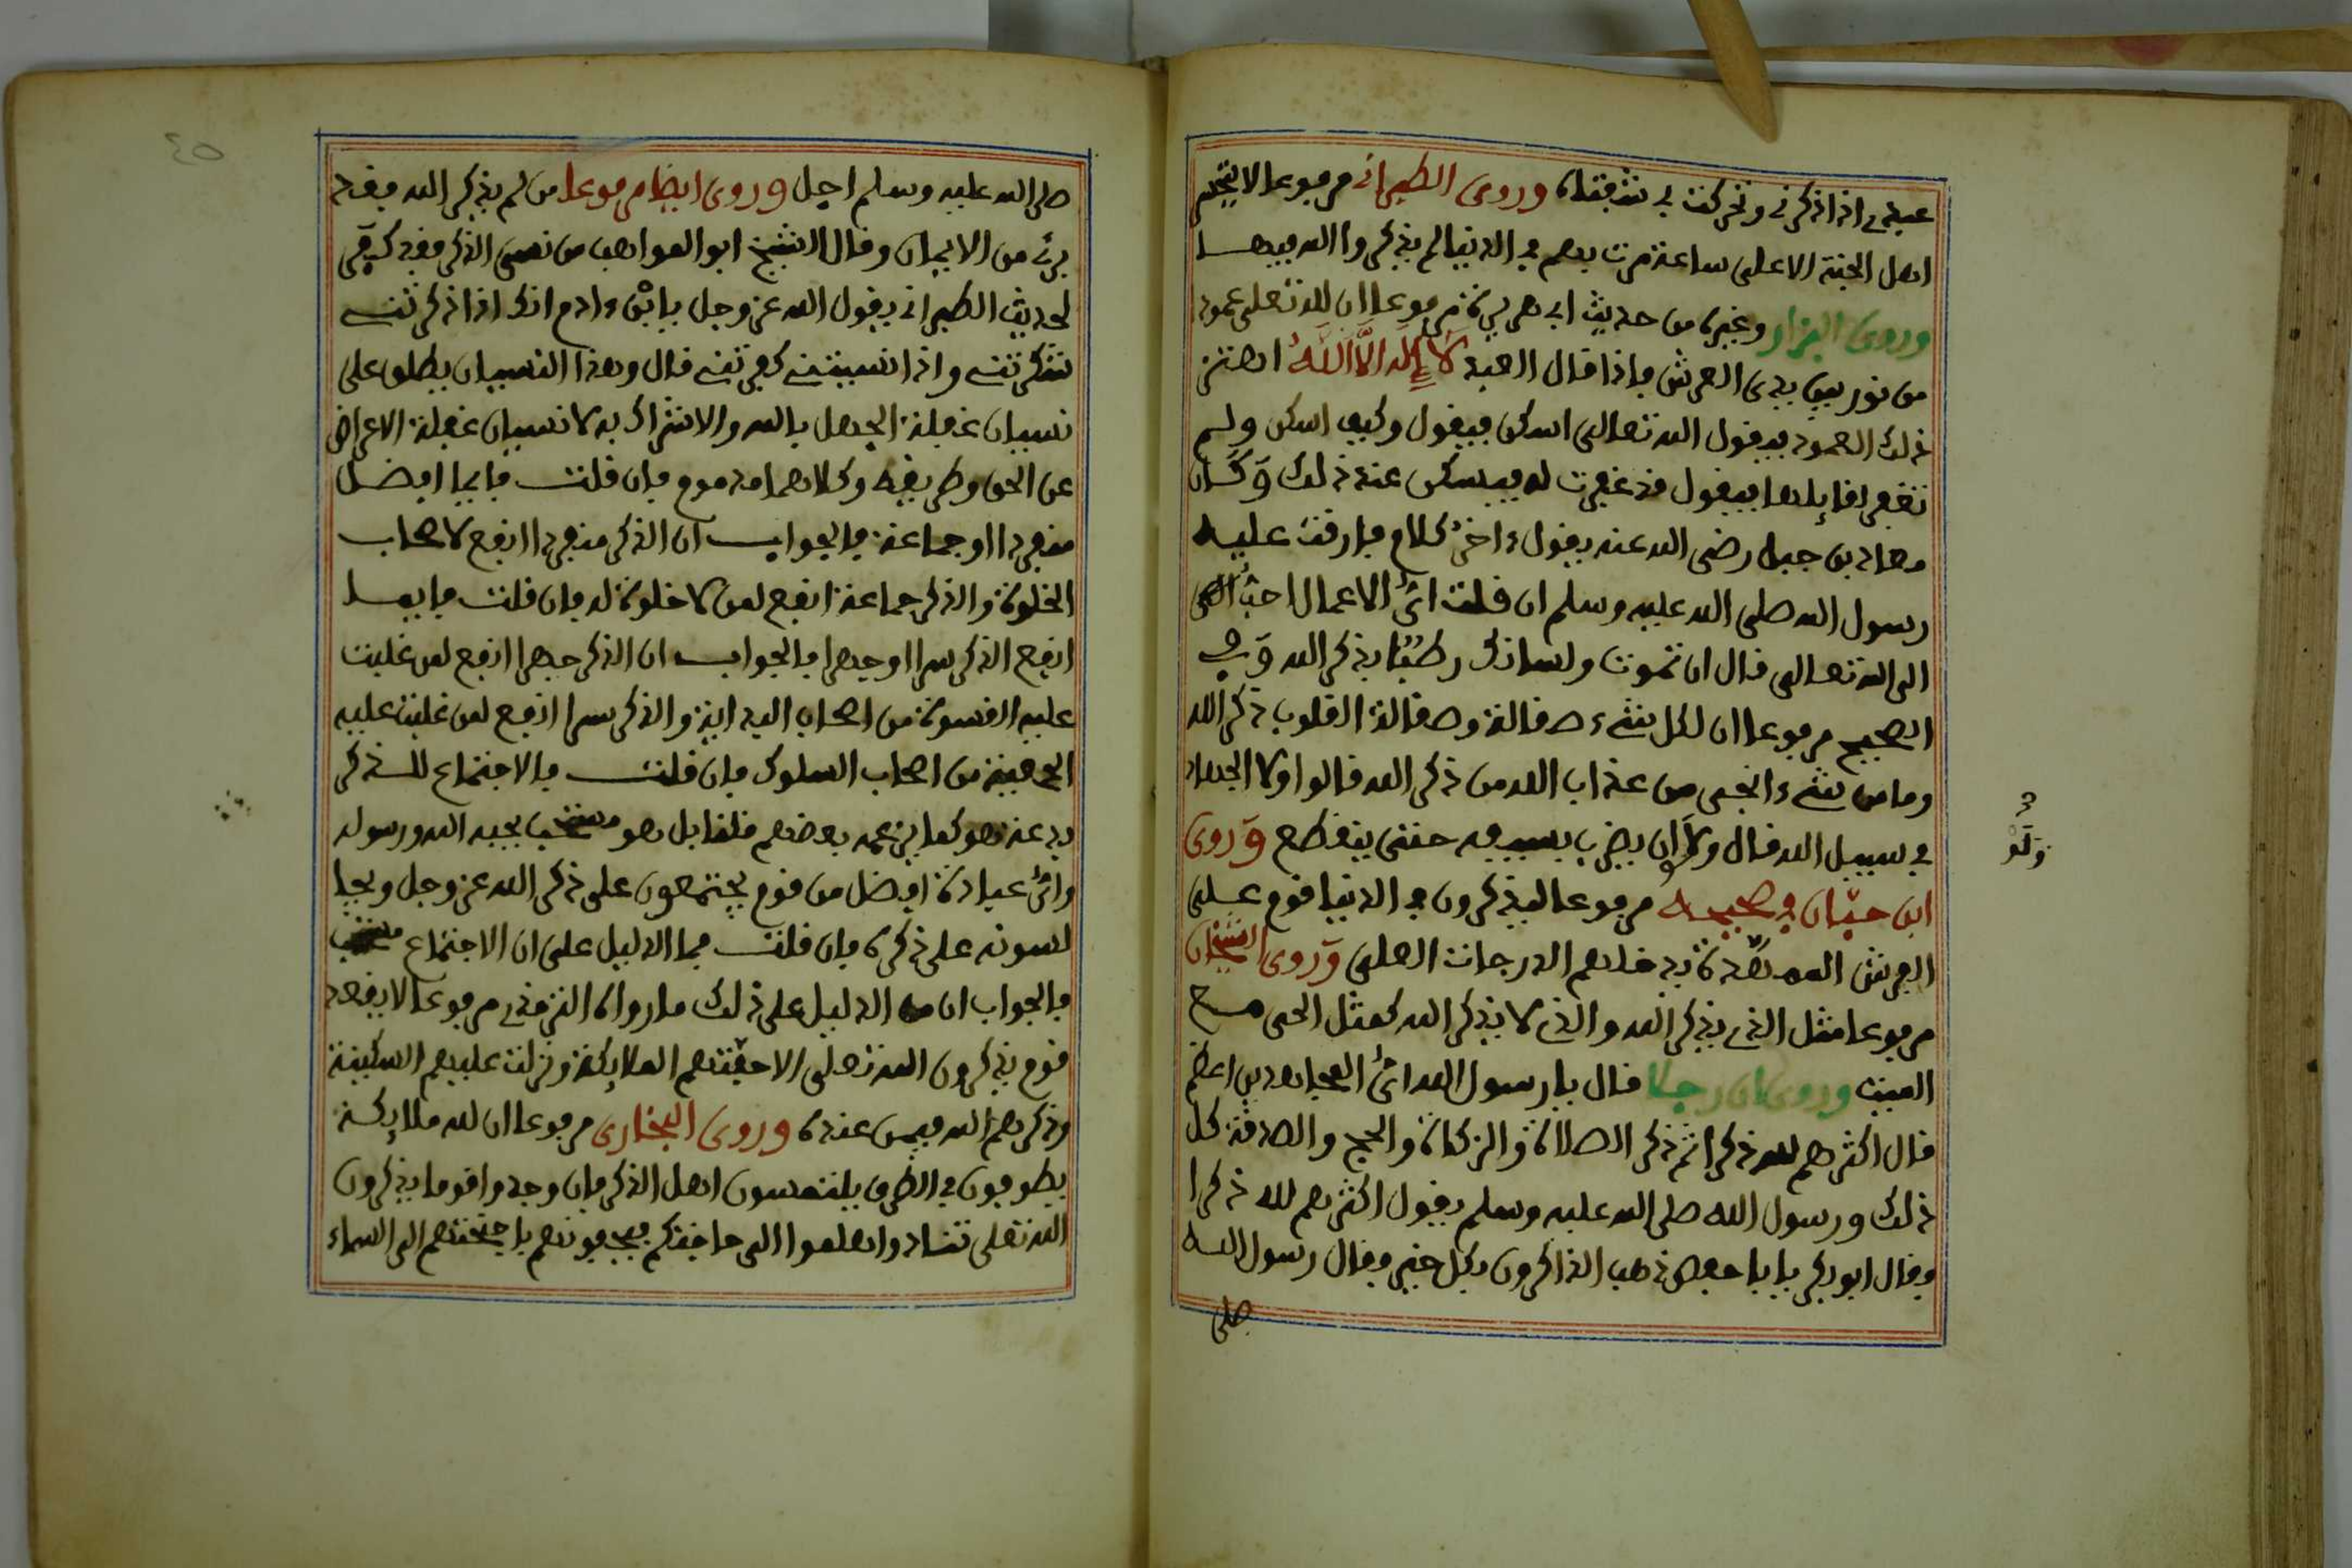 عبدى اذا ذكرنى وتحركت بى شفتاه وروى الطبرانى مرفوعا لا يتحسر
اهل الجنة الا على ساعة مرت بهم فى الدنيا لم يذكروا الله فيها
وروى البزار وغيره من حديث ابى هريرة مرفوعا ان لله تعلى عمودا
من نور بين يدى العرش فاذا قال العبد لا إله الا الله اهتز
ذلك العمود فيقول الله تعالى اسكن فيقول وكيف اسكن ولم
تغفر لقائلها فيقول قد غفرت له فيسكن عند ذلك وكان
معاذ بن جبل رضى الله عنه يقول ءاخر كلام فارقت عليه
رسول الله صلى الله عليه وسلم ان قلت اىّ الاعمال احبّ
الى الله تعالى قال ان تموت ولسانك رطبًا بذكر الله وفى
الصحيح مرفوعا ان لكل شىء صقالة وصقالة القلوب ذكر الله
وما من شىء انجى من عذاب الله من ذكر الله قالوا ولا الجهاد
فى سبيل الله قال ولا ان يضرب بسيفه حتى ينقطع وروى
ولَوْ
ابن حبّان فى صحيحه مرفوعا ليذكرون فى الدنيا قوم على
الفرش الممهّدة يدخلهم الدرجات العلى وروى الشيخان
مرفوعا مثل الذى يذكر الله والذى لا يذكر الله كمثل الحى مع
الميت وروى ان رجلا قال يا رسول الله اىّ المجاهدين اعظم
قال اكثرهم لله ذكرا ثم ذكر الصلاة والزكاة والحج والصدقة كل
ذلك ورسول الله صلى الله عليه وسلم يقول اكثرهم لله ذكرا
وقال ابو بكر يا با حفص ذهب الذاكرون بكل خير وقال رسول الله
صلى
٤٥
صلى الله عليه وسلم اجل وروى ايضا مرفوعا من لم يذكر الله فقد
برئ من الايمان وقال الشيخ ابو المواهب من نسى الذكر فقد كفر
لحديث الطبرانى يقول الله عز وجل يا ابْن ءادم انك اذا ذكرتنى
شكرتنى واذا نسيتنى كفرتنى قال وهذا النسيان يطلق على
نسيان غفلة الجهل بالله والاشراك به لا نسيان غفلة الاعراض
عن الحق وطريقه وكلاهما مذموم فان قلت فايما افضل
منفردا او جماعة فالجواب ان الذكر منفردا انفع لاصحاب
الخلوة والذكر جماعة انفع لمن لا خلوة له فان قلت فايهما
انفع الذكر سرا او جهرا فالجواب ان الذكر جهرا انفع لمن غلبت
عليه القسوة من اصحاب البداية والذكر سرا انفع لمن غلبت عليه
الجمعية من اصحاب السلوك فان قلت فالاجتماع للذكر
بدعة هو كما يزعمه بعضهم فلقائل هو مستحب يحبه الله ورسوله
واىّ عبادة افضل من قوم يجتمعون على ذكر الله عز وجل
لسونه على ذكره فان قلت فما الدليل على ان الاجتماع مستحب
فالجواب ان من الدليل على ذلك ما رواه الترمذى مرفوعا لا يقعد
قوم يذكرون الله تعلى الا حفّتهم الملائكة ونزلت عليهم السكينة
وذكرهم الله فيمن عنده وروى البخارى مرفوعا ان لله ملائكة
يطوفون فى الطرق يلتمسون اهل الذكر فان وجدوا قوما يذكرون
الله تعلى تنادوا هلموا الى حاجتكم فيحفونهم باجنحتهم الى السماء